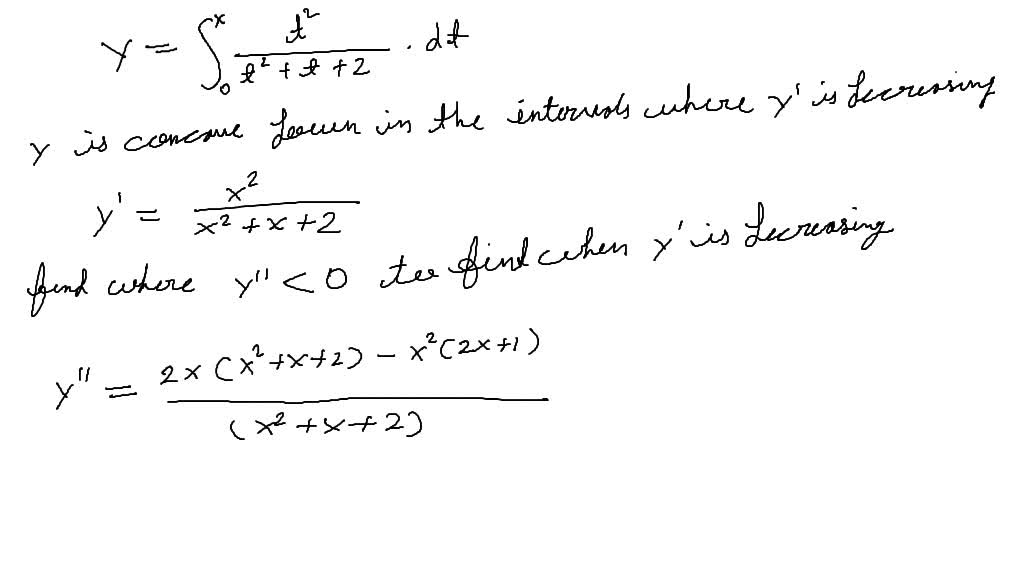 Y = ∫₀ˣ t² / (t² + t + 2) . dt
Y is concave down in the intervals where y' is decreasing
y' = x² / (x² + x + 2)
find where y'' < 0 to find when y' is decreasing
y'' = (2x (x² + x + 2) - x² (2x + 1)) / (x² + x + 2)